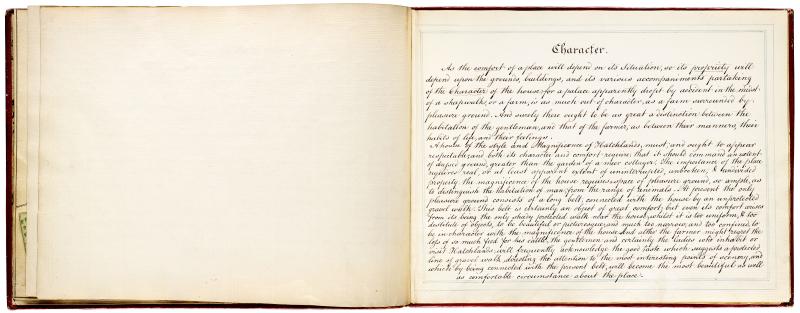 Character.
As the comfort of a place will depend on its Situation, so its propriety will
depend upon the grounds, buildings, and its various accompaniments partaking
of the Character of the house: for a palace apparently dropt by accident in the midst
of a sheepwalk, or a farm, is as much out of character, as a farm surrounded by
pleasure ground. And surely there ought to be as great a distinction between the
habitation of the gentleman, and that of the farmer, as between their manners, their
habits of life, and their feelings.
A house of the style and Magnificence of Hatchlands, must, and ought to appear
respectable: and both its character and comfort require, that it should command an extent
of drest ground, greater than the garden of a mere cottager. The importance of the place
requires real, or at least apparent extent of uninterrupted, unbroken, & undivided
property: the magnificence of the house requires space of pleasure ground, so ample, as
to distinguish the habitation of man, from the range of animals. At present the only
pleasure ground consists of a long belt, connected with the house by an unprotected
gravel walk. This belt is certainly an object of great comfort; but even its comfort arises
from its being the only shady protected walk near the house, whilst it is too uniform, & too
destitute of objects, to be beautiful or picturesque, and much too narrow, and too confined, to
be in character with the magnificence of the house. And altho' the farmer might regret the
loss of so much feed for his cattle, the gentlemen and certainly the ladies who inhabit or
visit Hatchlands, will frequently acknowledge the good taste which suggests a protected
line of gravel walk, directing the attention to the most interesting points of scenery, and
which by being connected with the present belt, will become the most beautiful as well
as comfortable circumstance about the place.